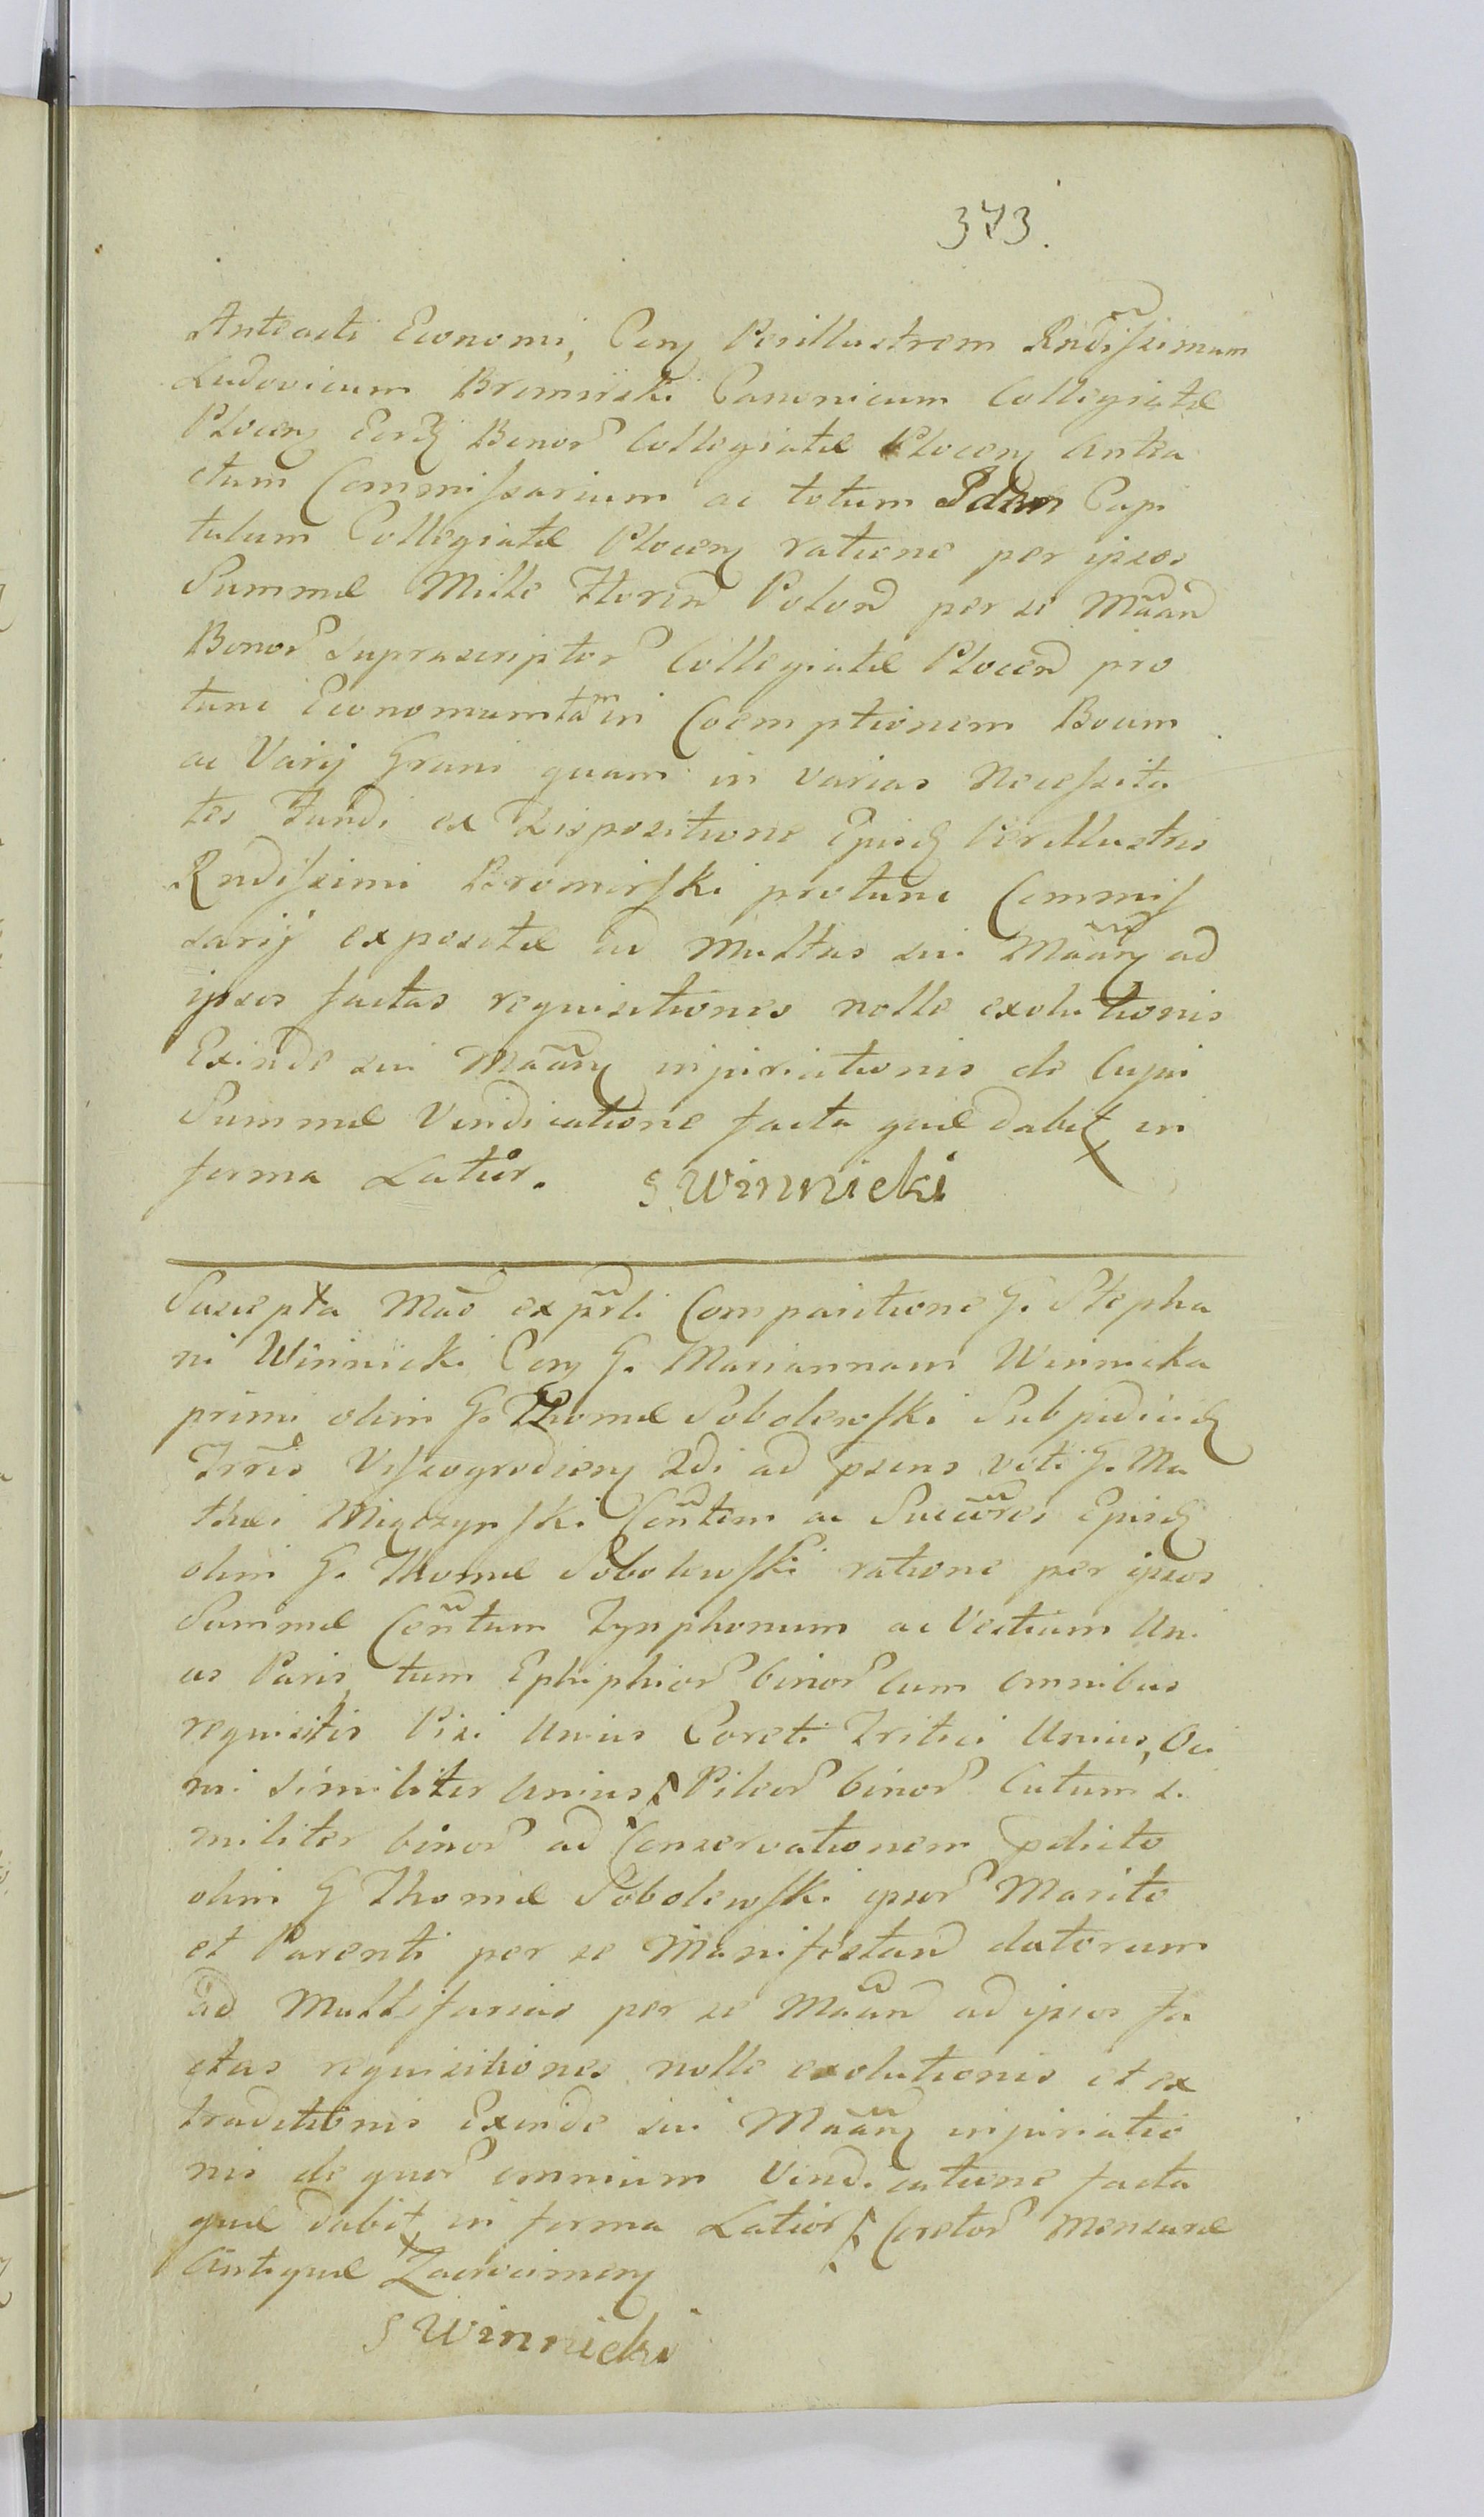 373.
Anteacti Economi, Con̄ Perillustrem Rndissimum
Ludovicum Bromirski Canonicum Collegiatæ
Plocen̄ Eordꝫ Bonor Collegiatæ Plocen̄ Antea
ctum Commissarium ac totum Capi
tulum Collegiatæ Plocen̄ ratione per ipsos
Summæ Mille Floren Polon per se Māan
Bonor suprascriptor Collegiatæ Plocen pro
tunc Economum tam in Coemptionem Boum
ac Varij Grani quam in varias Necessita
tes Fundi ex Dispositione Ejusdꝫ Perillustris
Rndissimi Bromirski protunc Commis
sarij expositæ ad multas sui Māan̄ ad
ipsos factas requisitiones nolle exolutionis
Exinde sui Māan̄ injuriationis de Cujus
Summæ Vindicatione facta quæ dabit in
forma Latior. S Winnicki
Suscepta Mao exprli Comparitione G. Stepha
ni Winnicki Con̄ G. Mariannam Winnicka
primi olim G. Thomæ Sobolewski Subjudicis
Trrīs Vissogrodien̄ 2di ad præsens voti G. Ma
thæi Miączynski Con̄tem ac Succōres Ejusdꝫ
olim G. Thomæ Sobolewski ratione per ipsos
Summæ Cen̄tum Tynphonum ac Vestium Uni
us Paris tum Ephiphior binor cum omnibus
requisitis Pisi Unius Coreti Tritici Unius, Oci
mi similiter Unius Pileor binor Cutum si
militer binor ad Conservationem pdicto
olim G Thomæ Sobolewski ipsor Marito
et Parenti per se Manifestan datorum
ad Multifarias per se Māan ad ipsos fa
ctas requisitiones nolle exolutionis et ex
traditionis Exinde sui Māan̄ injuriatio
nis de quor omnium Vindicatione facta
quæ dabit in forma Latior Coretor Mensuræ
Antiquæ Zacroczimen̄
S Winnicki